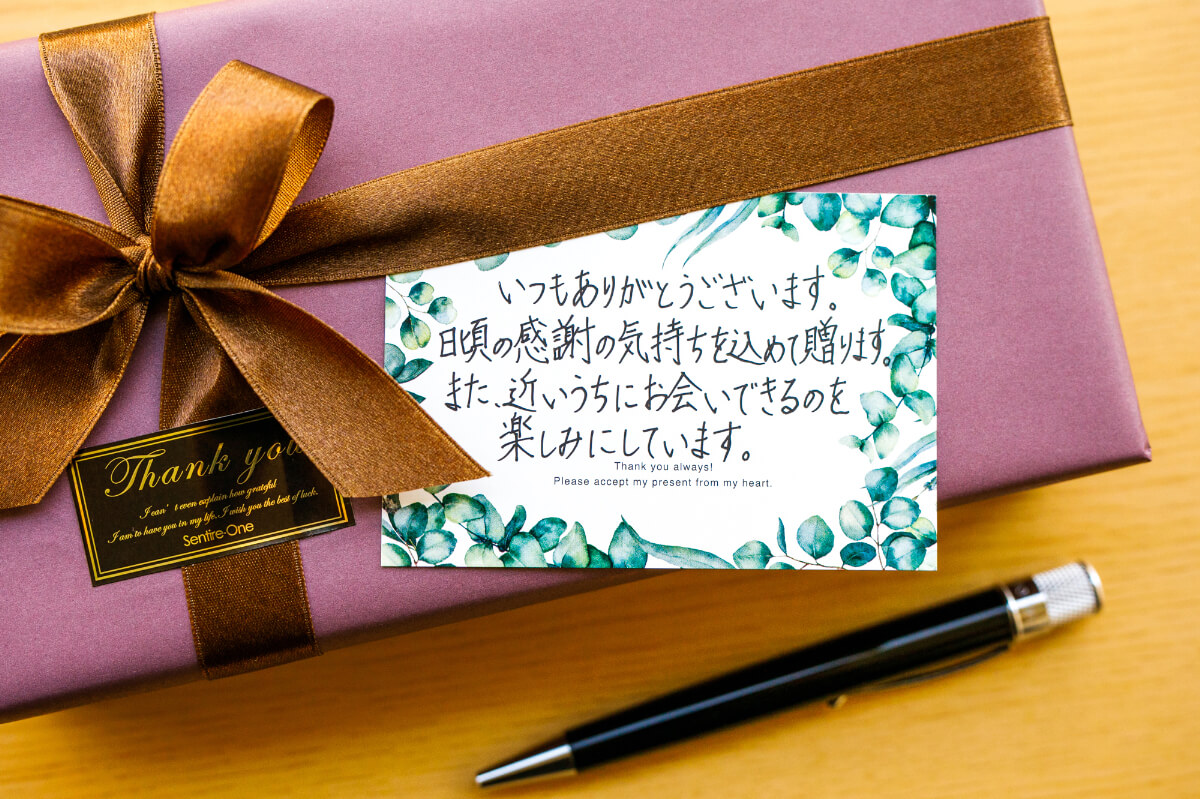 いつもありがとうございます。
日頃の感謝の気持ちを込めて贈ります。
また、近いうちにお会いできるのを
楽しみにしています。
Thank you always!
Please accept my present from my heart.
Thank you
I can't even explain how grateful
I am to have you in my life. I wish you the best of luck.
Sentire-One